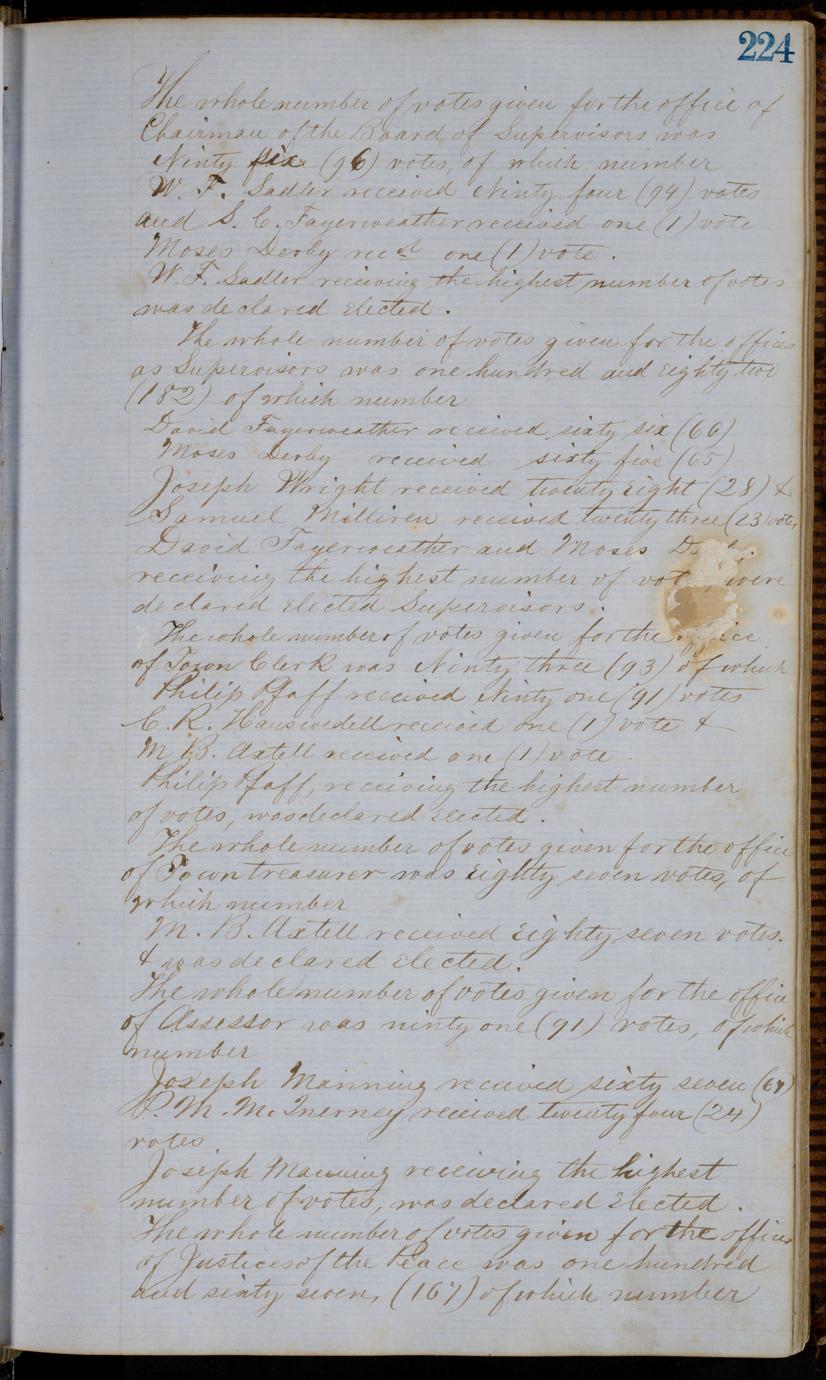 224
The whole number of votes given for the office of
Chairman of the Board of Supervisors was
Ninty six (96) votes, of which number
W. F. Sadler received Ninty four (94) votes
and S. C. Fayerweather received one (1) vote
Moses Derby recd one (1) vote.
W. F. Sadler receiving the highest number of votes
was declared Elected.
The whole number of votes given for the offices
as Supervisors was one hundred and Eighty two
(182) of which number
David Fayerweather received sixty six (66)
Moses Derby received sixty five (65)
Joseph Wright received twenty Eight (28) &
Samuel Milliren received twenty three (23) votes
David Fayerweather and Moses D
receiving the highest number of vot were
declared Elected Supervisors.
The whole number of votes given for the office
of Town Clerk was Ninty three (93) of which
Philip Pfaff received Ninty one (91) votes
C. R. Hauswedell received one (1) vote &
M B. Axtell received one (1) vote.
Philip Pfaff, receiving the highest number
of votes, was declared Elected.
The whole number of votes given for the office
of Town treasurer was Eighty seven votes, of
which number
M. B. Axtell received Eighty seven votes.
& was declared Elected.
The whole number of votes given for the office
of Assessor was ninty one (91) votes, of which
number
Joseph Manning received sixty seven (67)
P. M. McInerney received twenty four (24)
votes
Joseph Manning receiving the highest
number of votes, was declared Elected.
The whole number of votes given for the offices
of Justices of the Peace was one hundred
and sixty seven, (167) of which number